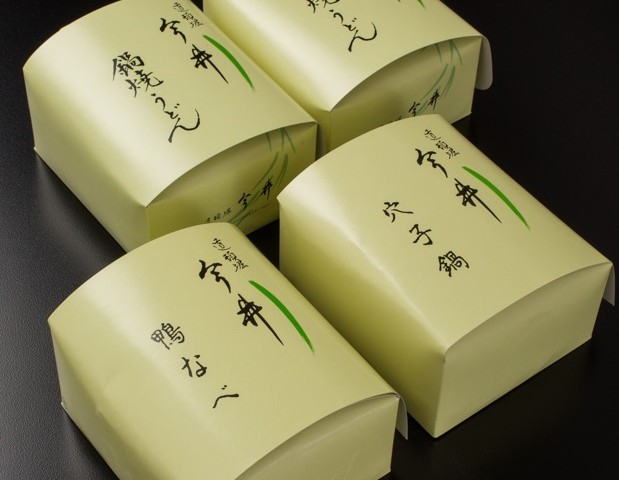 道頓堀
今井
鍋焼うどん
道頓堀 今井
うどん
今井
道頓堀
今井
穴子鍋
道頓堀
今井
鴨なべ